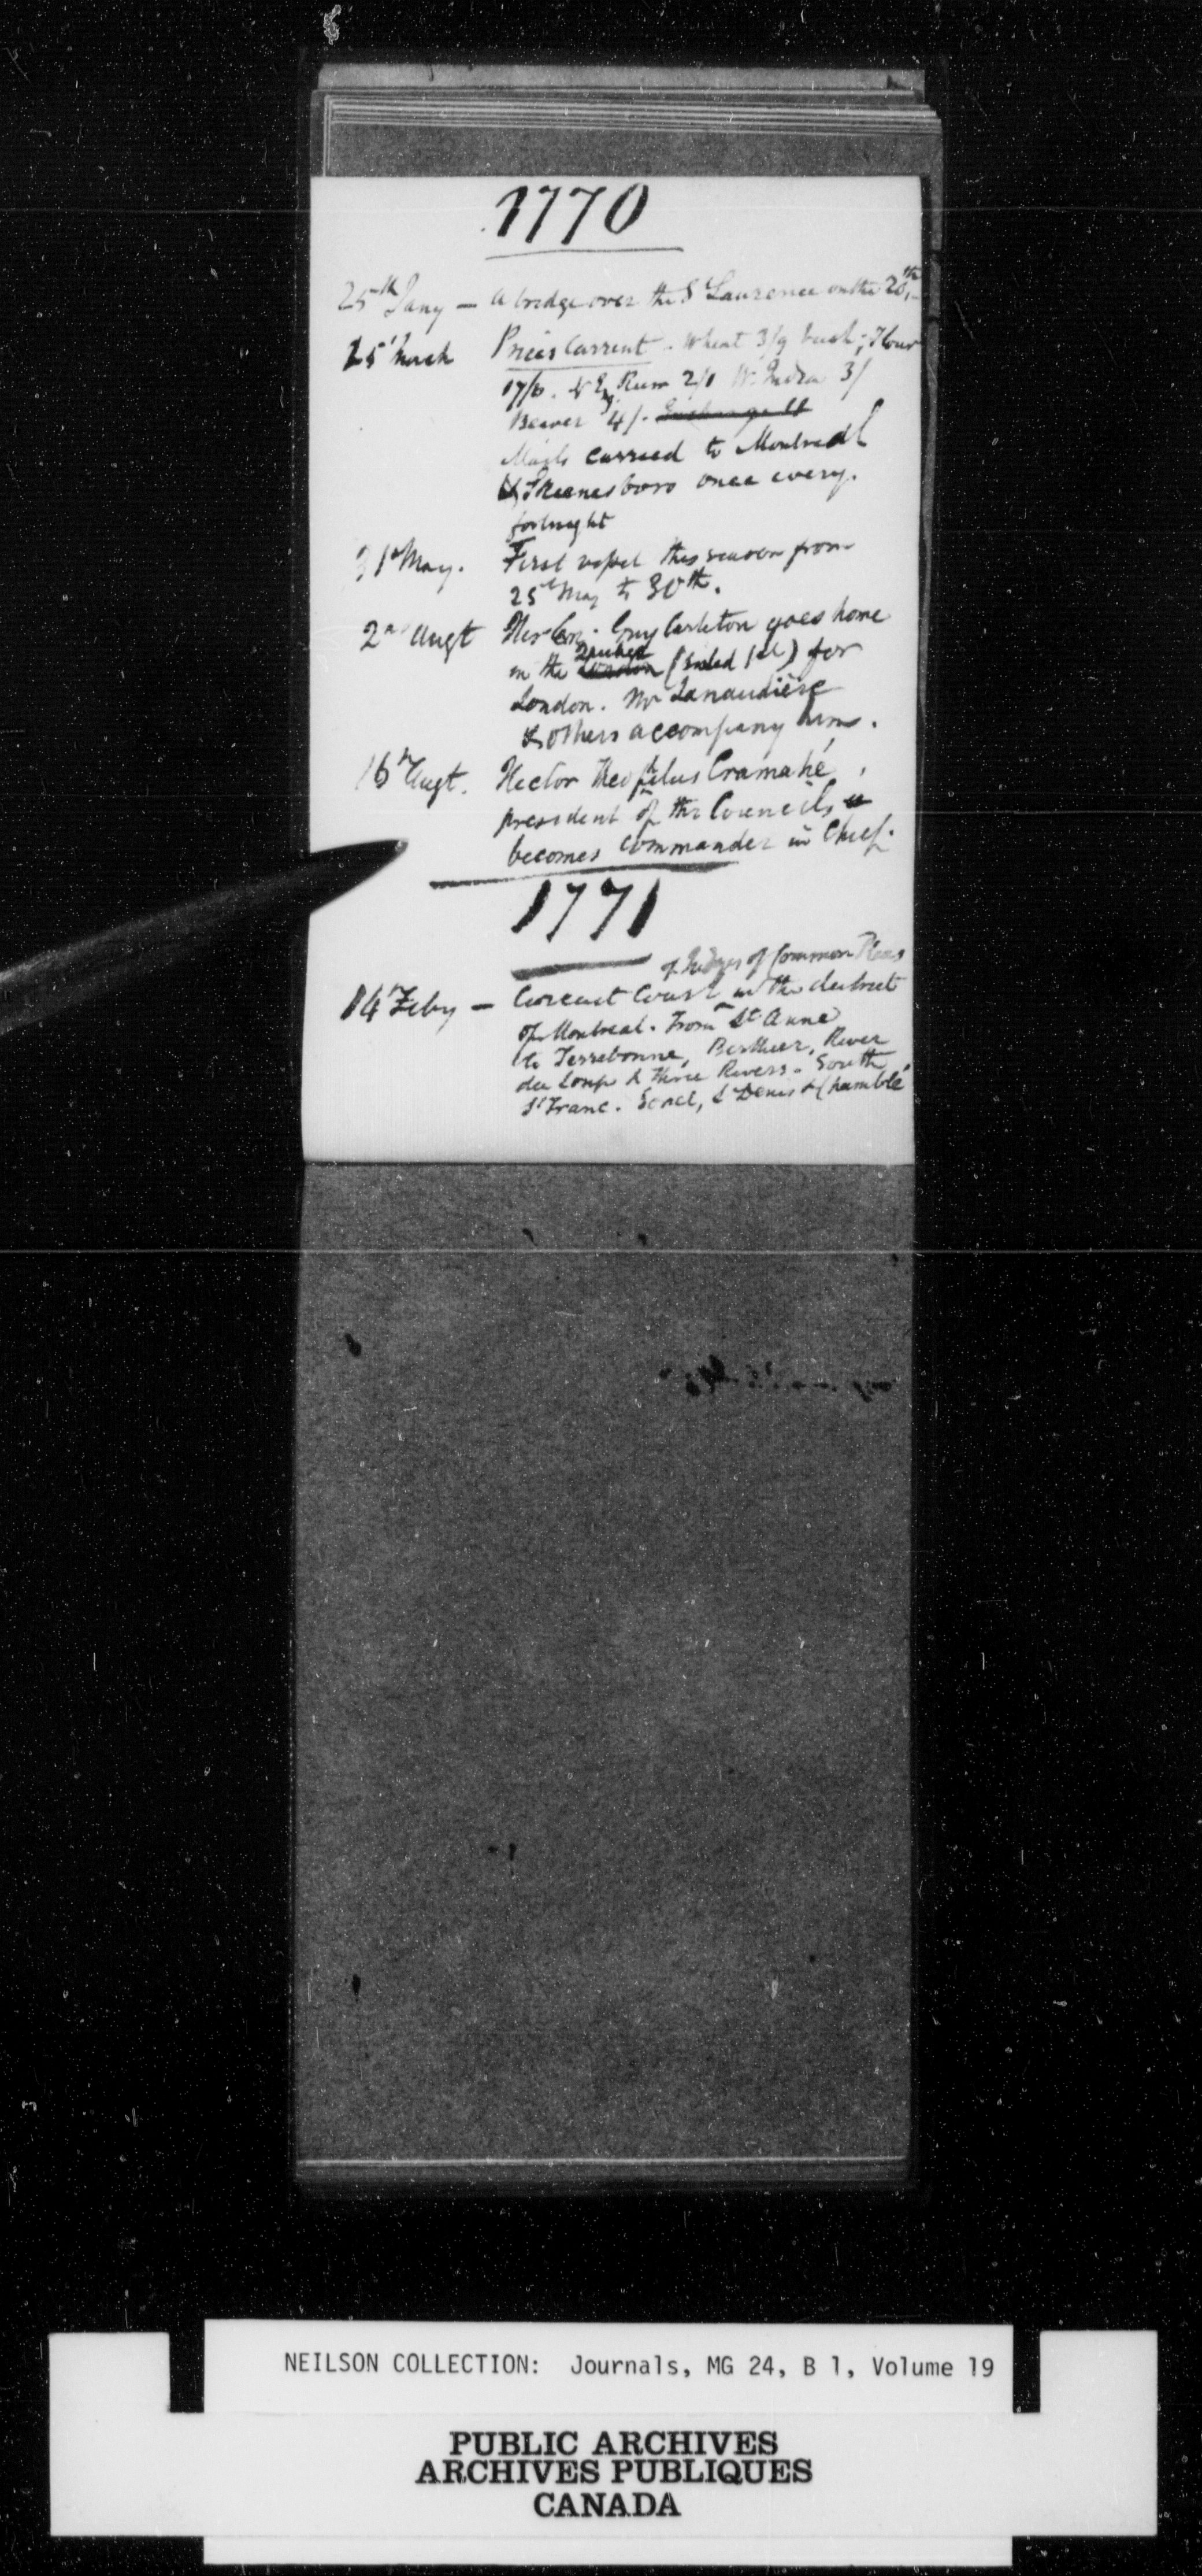 1770
25th Jany — A bridge over the St Laurence on the 20th,
15 March Prices Current. Wheat 3/9 bush; Flour
17/6. N E Rum 2/1 W. India 3/
Beaver 4/.
Mails carried to Montreal
& Skeenesboro once every
fortnight
31st May. First vessel this season from
25th May to 30th.
2nd Augt His Exy. Guy Carleton goes home
in the Quebec (sailed 1st) for
London. Mr Lanaudière
& others accompany him.
16th Augt. Hector Theophilus Cramahé,
president of the Councils
becomes commander in Chief.
1771
of Judges of Common Pleas
14 Feby — Circuit Court in the district
of Montreal. From St Anne
to Terrebonne, Berthier, River
du Loup & Three Rivers. South
St Franc. Sorel, St Denis & Chamblé
NEILSON COLLECTION: Journals, MG 24, B 1, Volume 19
PUBLIC ARCHIVES
ARCHIVES PUBLIQUES
CANADA